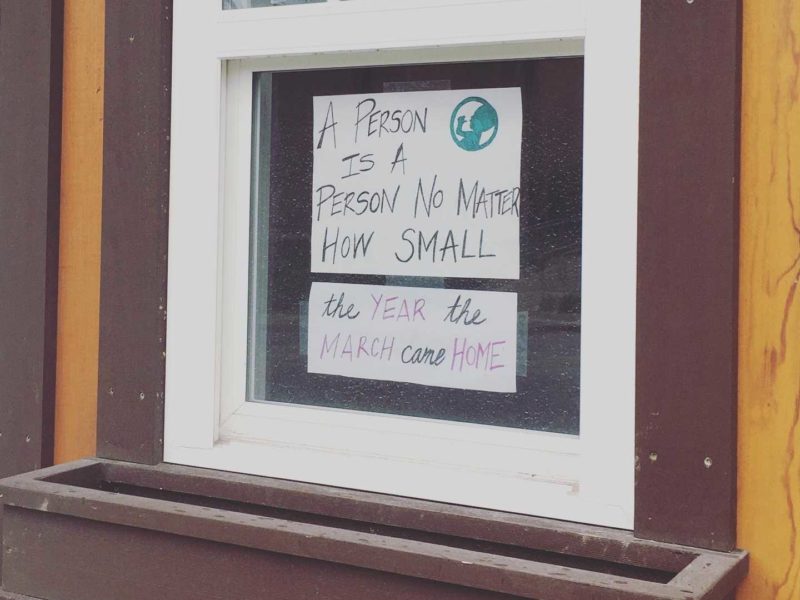 A PERSON
IS A
PERSON NO MATTER
HOW SMALL
the YEAR the
MARCH came HOME